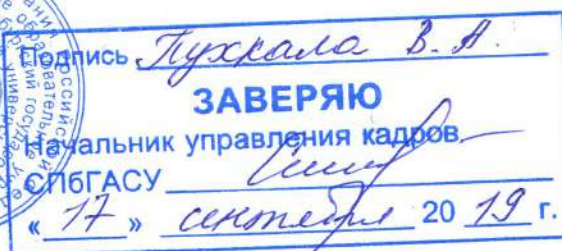 Подпись Пухкала В. А.
ЗАВЕРЯЮ
Начальник управления кадров
СПбГАСУ
« 17 » сентября 20 19 г.